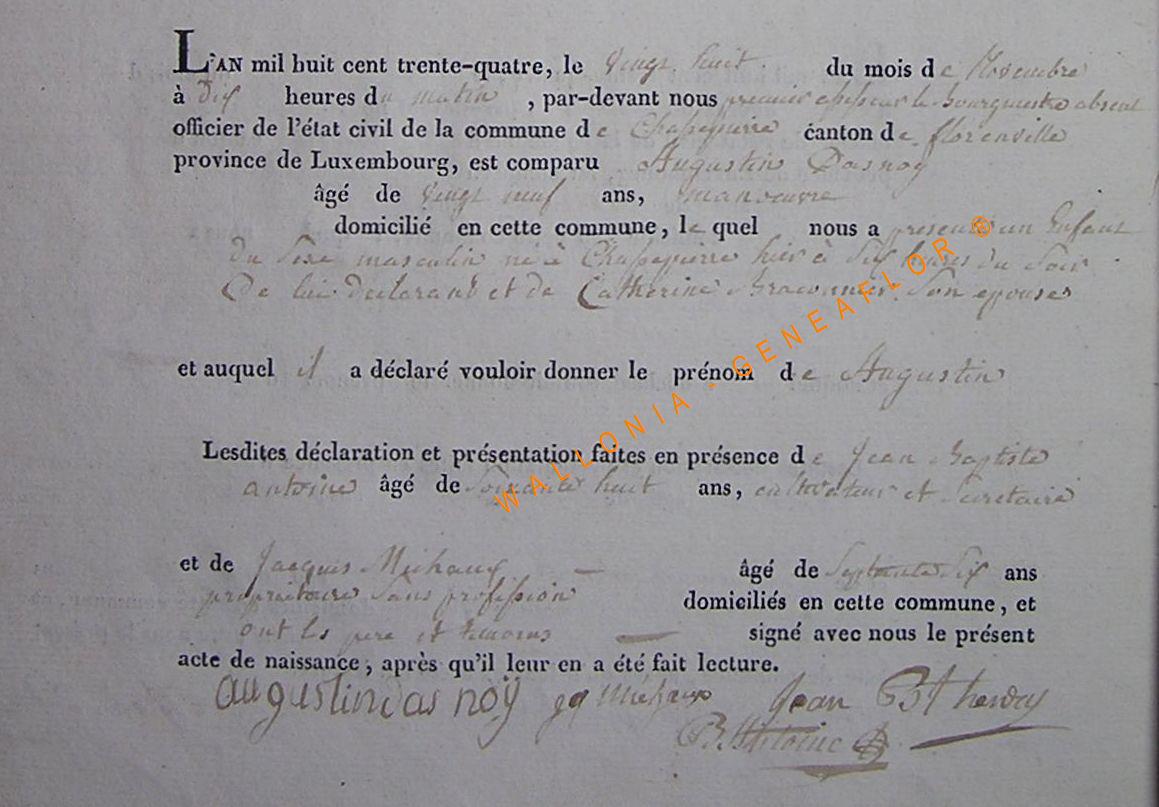 L'AN mil huit cent trente-quatre, le vingt huit du mois de Novembre
à Dix heures du matin, par-devant nous premier assesseur le bourgmestre absent
officier de l'état civil de la commune de Chassepierre canton de florenville
province de Luxembourg, est comparu Augustin Dasnoy
âgé de vingt neuf ans, manoeuvre
domicilié en cette commune, le quel nous a présenté un Enfant
du Sexe masculin né à Chassepierre hier à Six heures du Soir
De lui declarant et de Catherine Braconnier Son epouse
et auquel il a déclaré vouloir donner le prénom de Augustin
Lesdites déclaration et présentation faites en présence de Jean Baptiste
antoine âgé de Soixante huit ans, cultivateur et Secretaire
et de Jacques Michaux — âgé de Septante Six ans
proprietaire Sans profession domiciliés en cette commune, et
ont les pere et temoins — signé avec nous le présent
acte de naissance, après qu'il leur en a été fait lecture.
augustin das noÿ jq Michaux Jean Bt henry
B. Antoine
WALLONIA - GENEAFLOR ®